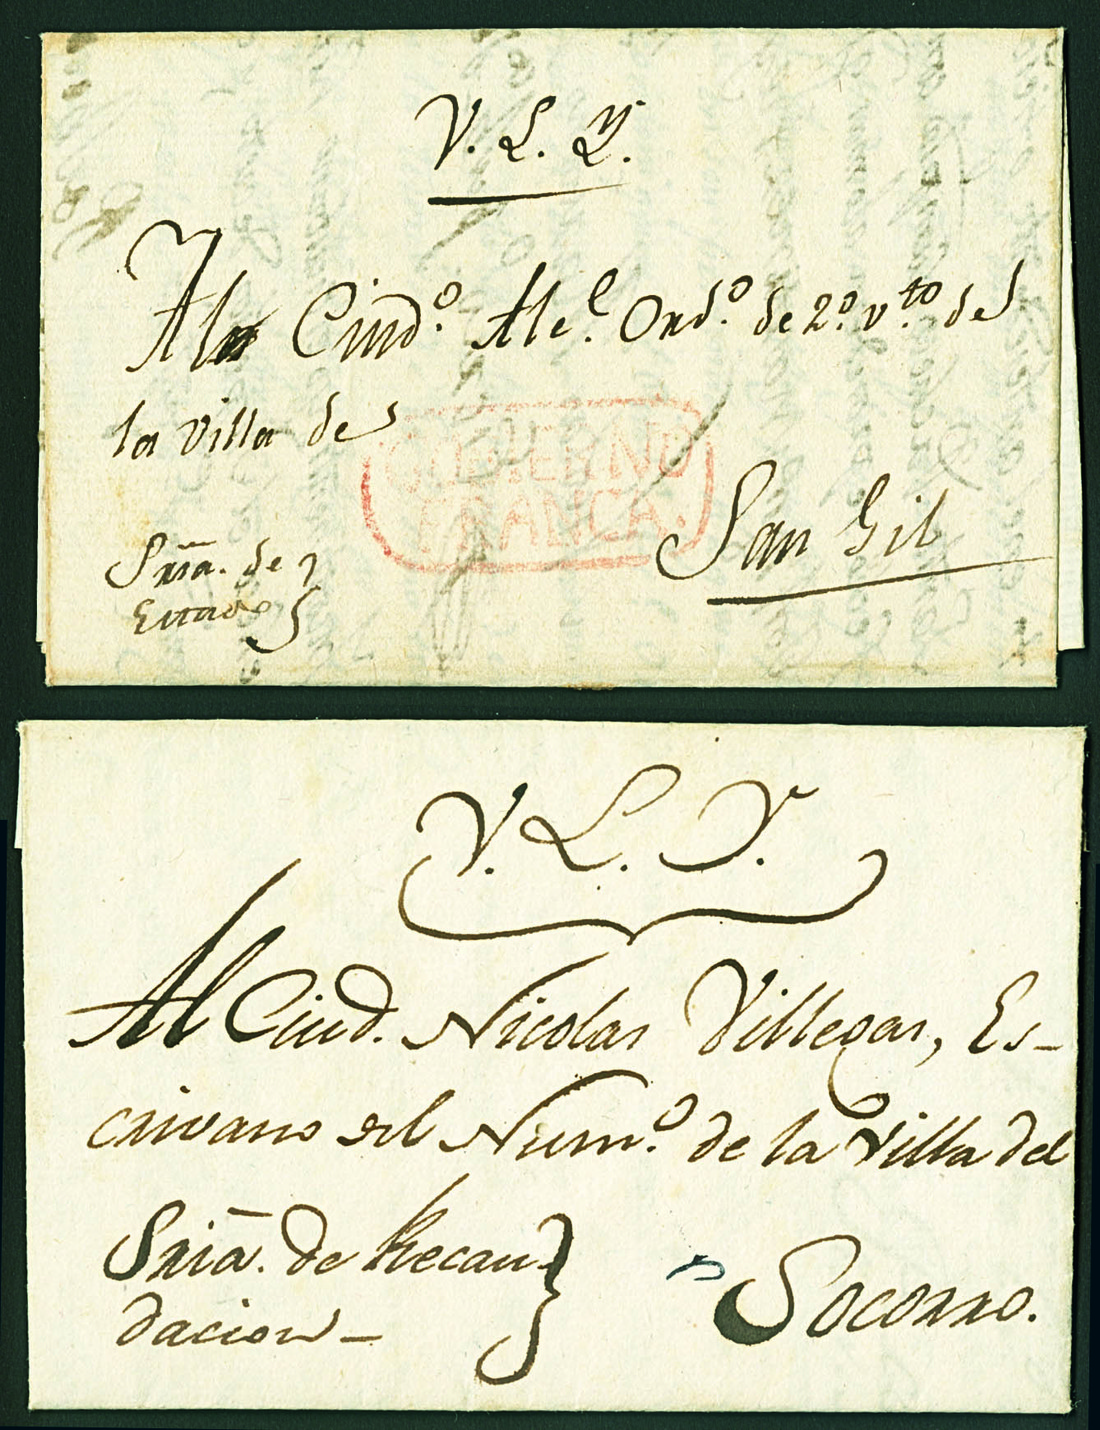 V. L. Y.
Al Ciud.º Alc.e Ord.º de 2º. v.to de
la Villa de
GOBIERNO
FRANCA.
San Gil
Sria. de
Estado
V. L. Y.
Al Ciud. Nicolas Villegas, Es-
crivano del Num.º de la Villa del
Sria. de Recau-
dacion
Socorro.